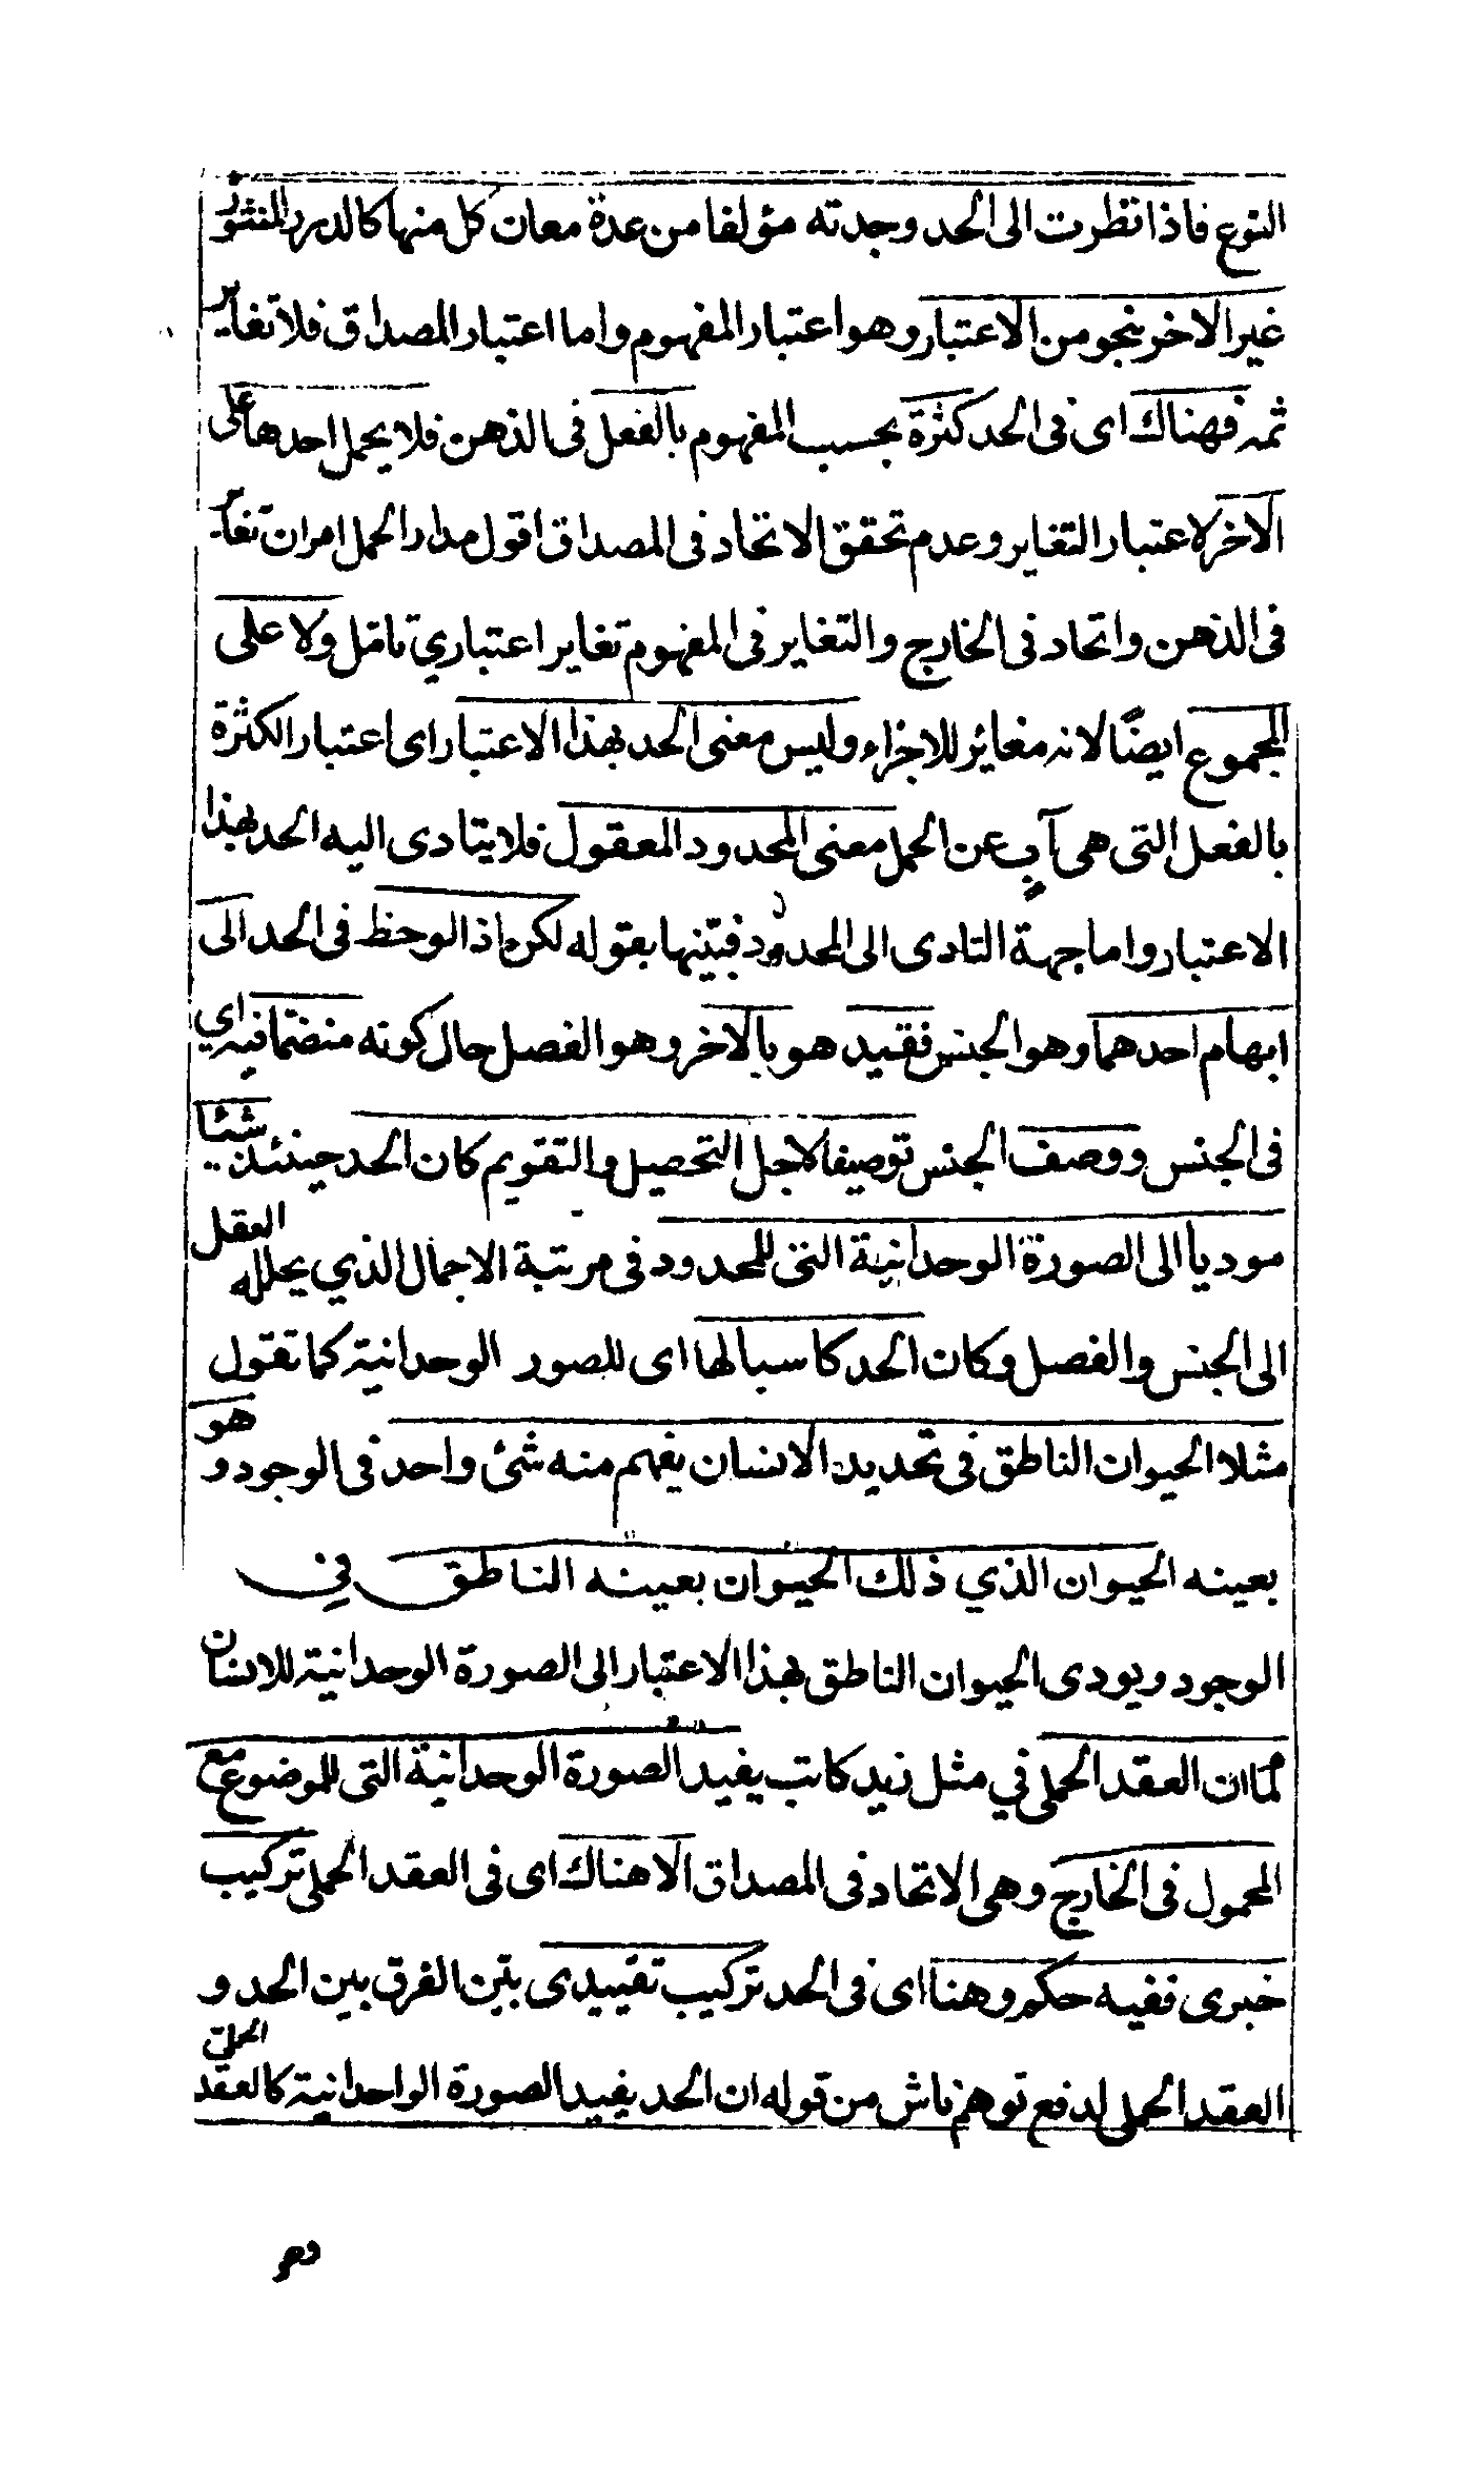 النوع فاذا نظرت الى الحد وجدته مؤلفا من عدة معان كل منها كالدرر المنثور
غير الاخر بنحو من الاعتبار وهو اعتبار المفهوم واما اعتبار المصداق فلا تغاير
ثمه فهناك اى فى الحد كثرة بحسب المفهوم بالفعل فى الذهن فلا يحمل احدها على
الاخر لاعتبار التغاير وعدم تحقق الاتحاد فى المصداق اقول مدار الحمل امران تغاير
فى الذهن واتحاد فى الخارج والتغاير فى المفهوم تغاير اعتباري تامل ولا على
المجموع ايضًا لانه مغائر للاجزاء وليس معنى الحد بهذا الاعتبار اى اعتبار الكثرة
بالفعل التى هى آبٍ عن الحمل معنى المحدود المعقول فلا يتادى اليه الحد بهذا
الاعتبار واما جهة التادى الى المحدود فبيّنها بقوله لكن اذا لوحظ فى الحد الى
ابهام احدهما وهو الجنس فقيد هو بالاخر وهو الفصل حال كونه منضما فيه اي
فى الجنس ووصف الجنس توصيفا لاجل التحصيل والتقويم كان الحد حينئذ شئا
موديا الى الصورة الوحدانية التى للمحدود فى مرتبة الاجمال الذي يحلله العقل
الى الجنس والفصل وكان الحد كاسبا لها اى للصور الوحدانية كما تقول
مثلا الحيوان الناطق فى تحديد الانسان يفهم منه شئ واحد فى الوجود و هو
بعينه الحيوان الذي ذلك الحيوان بعينه الناطق في
الوجود ويودى الحيوان الناطق بهذا الاعتبار الى الصورة الوحدانية للانسان
كما ان العقد الحملى في مثل زيد كاتب يفيد الصورة الوحدانية التى للموضوع مع
المحمول فى الخارج وهى الاتحاد فى المصداق الا هناك اى فى العقد الحملى تركيب
خبرى ففيه حكم وهنا اى فى الحد تركيب تقييدى بيّن الفرق بين الحد و
العقد الحملى لدفع توهم ناش من قوله ان الحد يفيد الصورة الواحدانية كالعقد الحملى